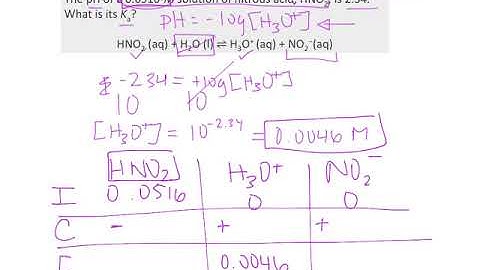 The pH of a 0.0516 M solution of nitrous acid, HNO₂, is 2.34.
What is its Kₐ? pH = -log[H₃O⁺]
HNO₂ (aq) + H₂O (l) ⇌ H₃O⁺ (aq) + NO₂⁻ (aq)
-2.34 = +log[H₃O⁺]
10 10
[H₃O⁺] = 10^-2.34 = 0.0046 M
HNO₂ H₃O⁺ NO₂⁻
I 0.0516 0 0
C - + +
0.0046